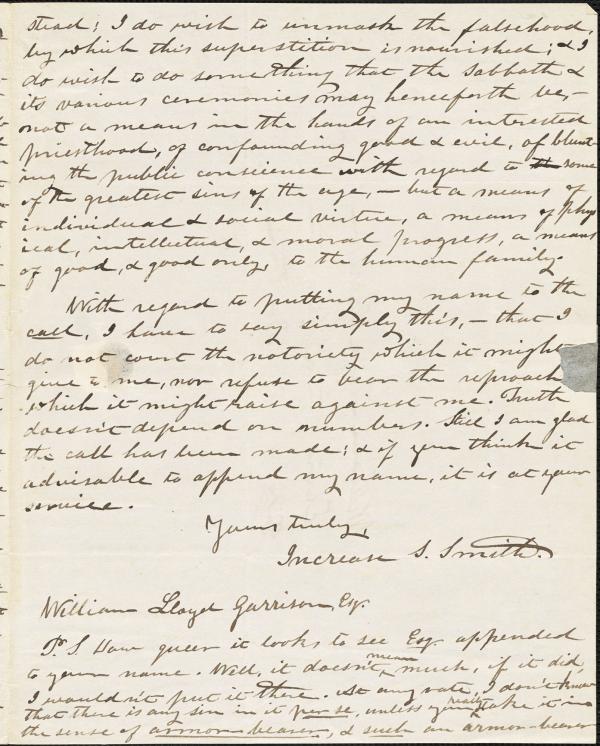 stead; I do wish to unmask the falsehood,
by which this superstition is nourished; & I
do wish to do something that the Sabbath &
its various ceremonies may henceforth be,—
not a means in the hands of an interested
priesthood, of confounding good & evil, of blunt-
ing the public conscience with regard to some
of the greatest sins of the age,— but a means of
individual & social virtue, a means of phys
ical, intellectual, & moral progress, a means
of good, & good only, to the human family.
With regard to putting my name to the
call, I have to say simply this,— that I
do not court the notoriety which it might
give to me, nor refuse to bear the reproach
which it might raise against me. Truth
doesn't depend on numbers. Still I am glad
the call has been made; & if you think it
advisable to append my name, it is at your
service.
Yours truly,
Increase S. Smith.
William Lloyd Garrison, Esq.
P.S. How queer it looks to see Esq. appended
to your name. Well, it doesn't mean much, if it did,
I wouldn't put it there. At any rate, I don't know
that there is any sin in it per se, unless you really take it in
the sense of armor-bearer, & such an armor-bearer